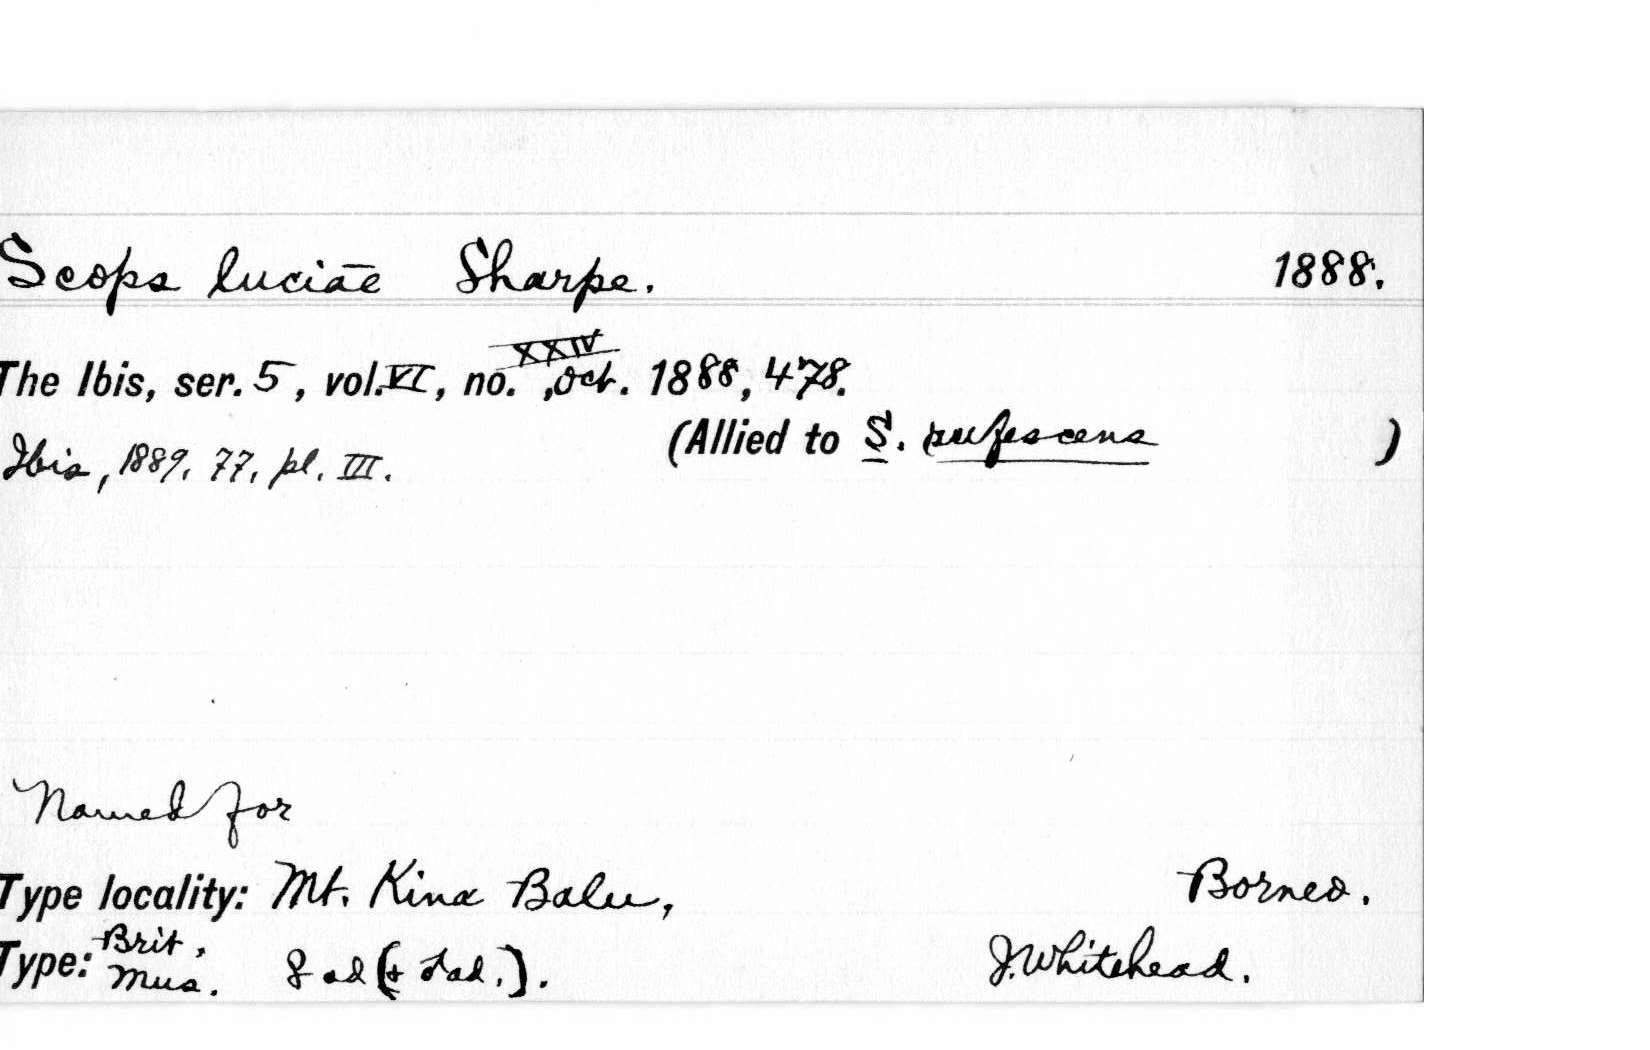 Scops luciæ Sharpe. 1888.
The Ibis, ser. 5, vol. VI, no. XXIV, Oct. 1888, 478.
(Allied to S. rufescens )
Ibis, 1889, 77, pl. III.
Named for
Type locality: Mt. Kina Balu, Borneo.
Type: Brit. Mus. ad ( ad.). J. Whitehead.